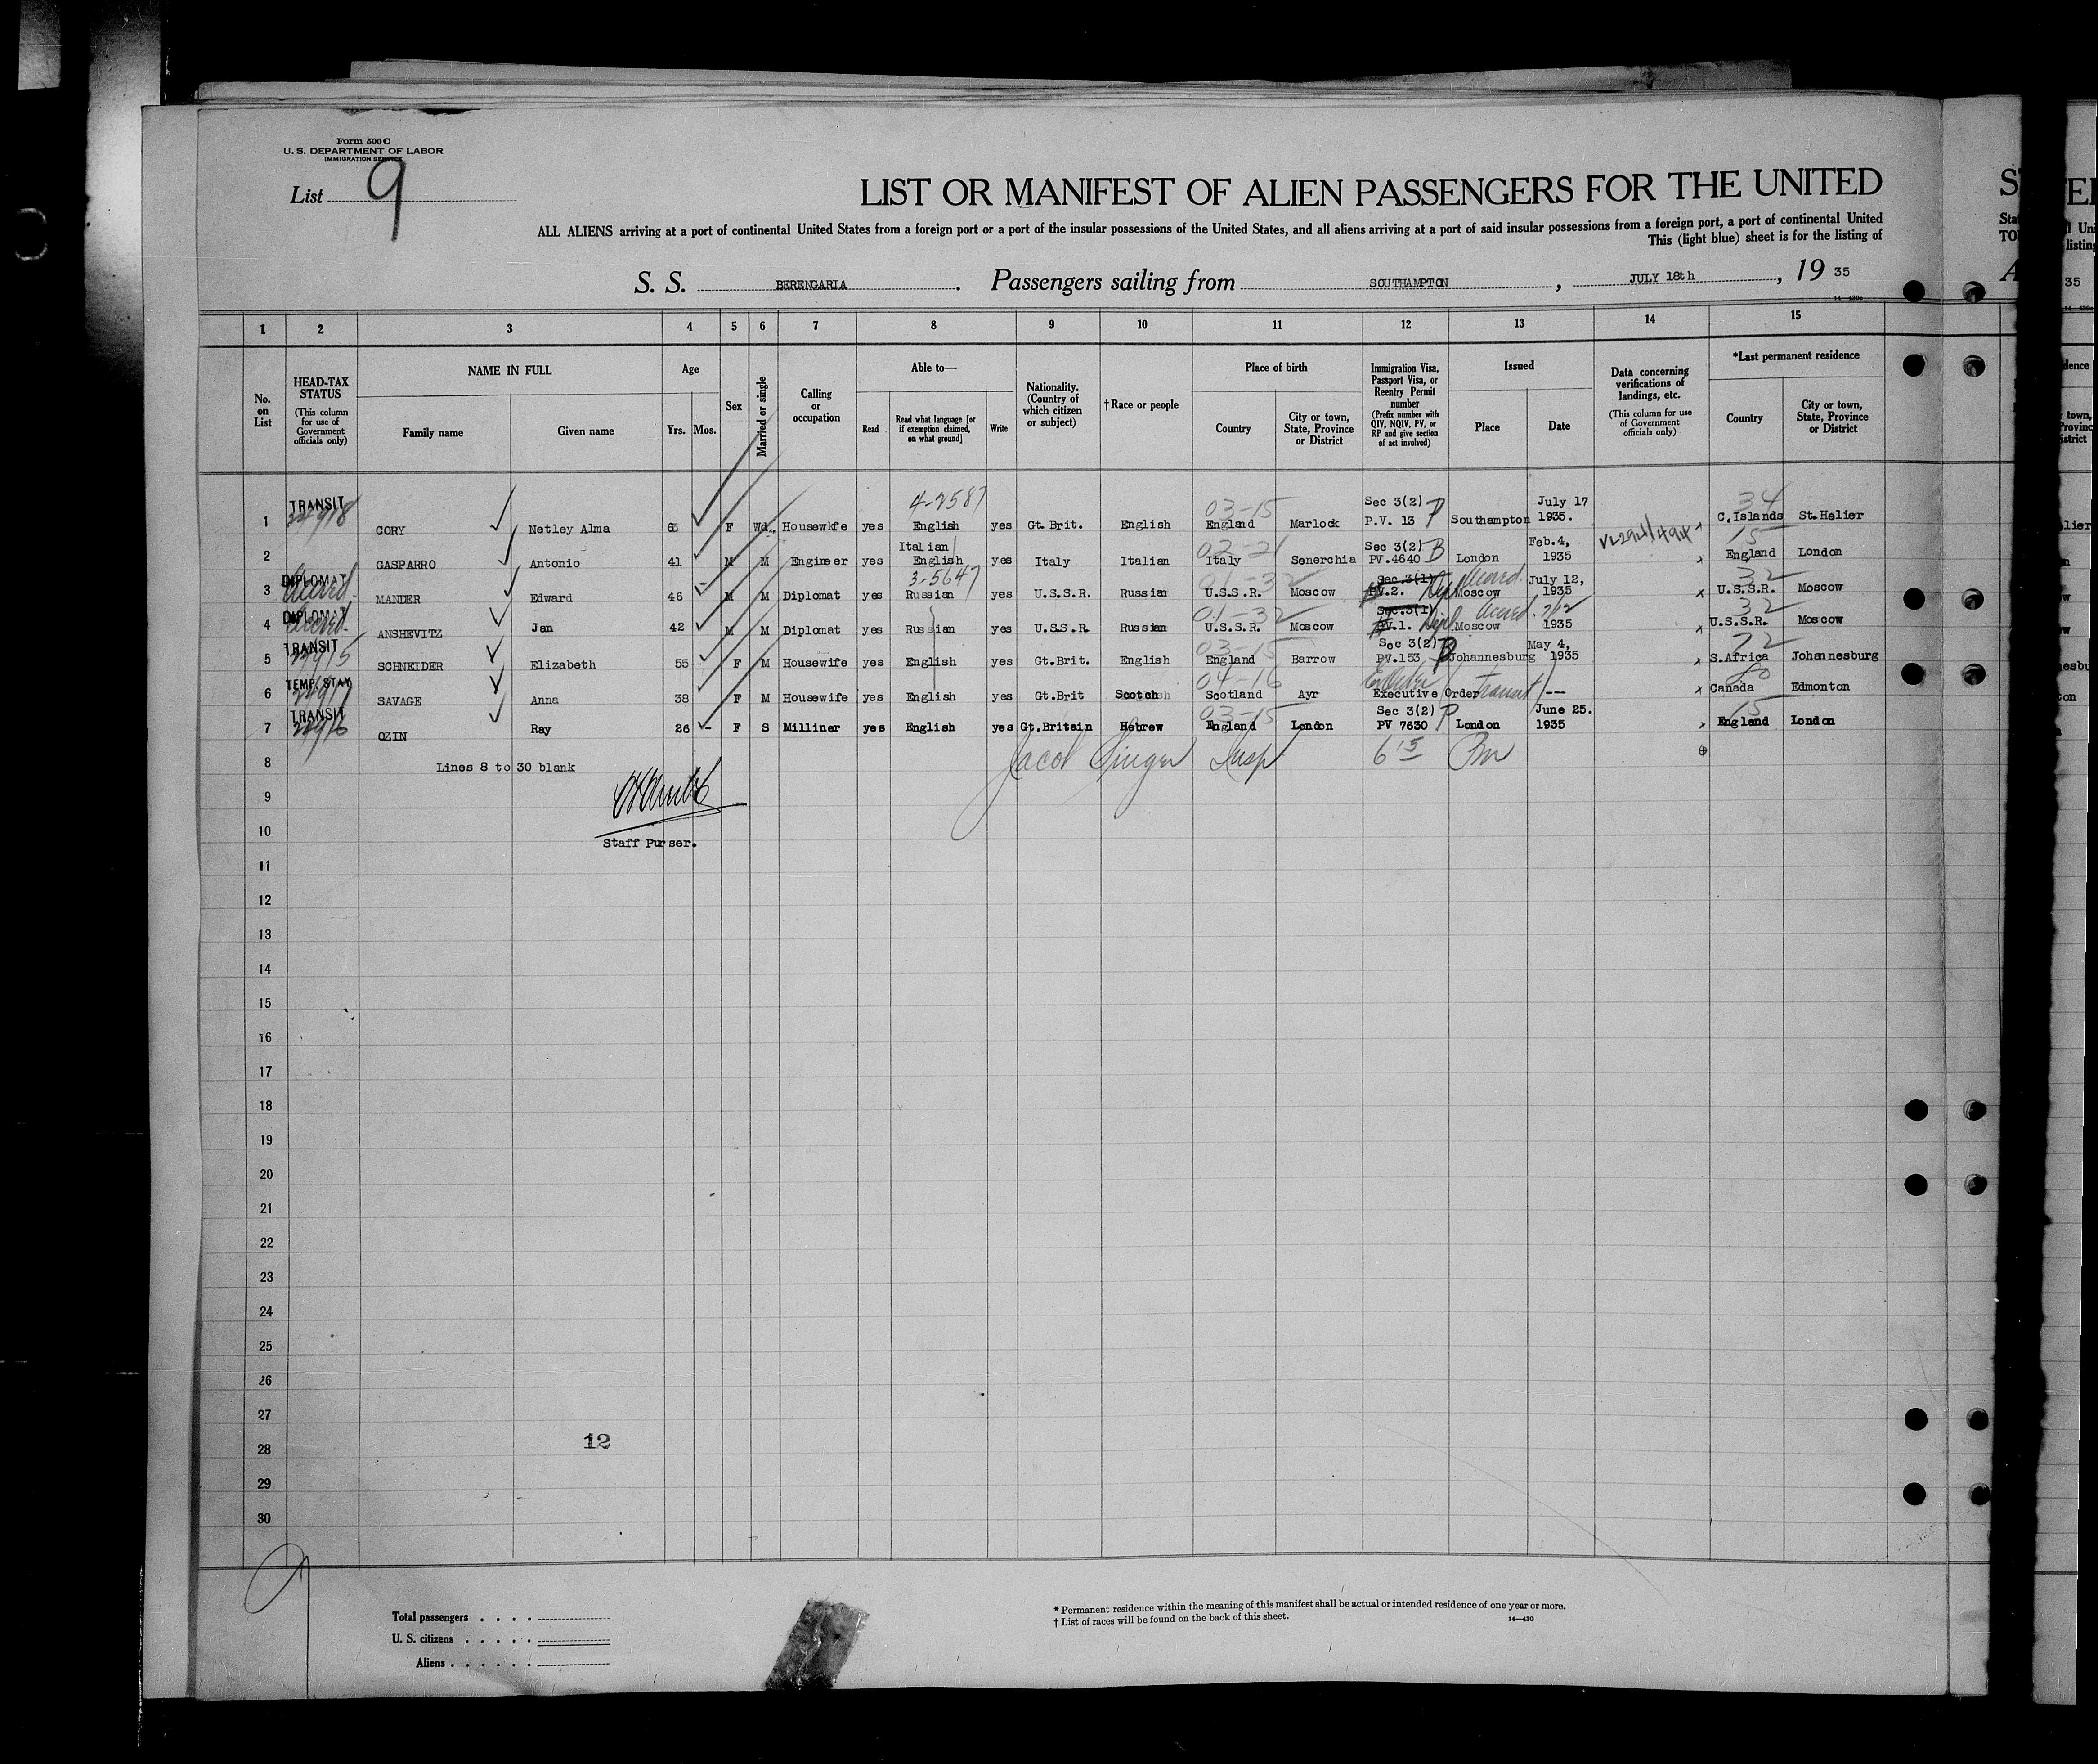 Form 500 C
U. S. DEPARTMENT OF LABOR
IMMIGRATION SERVICE
List 9
LIST OR MANIFEST OF ALIEN PASSENGERS FOR THE UNITED
ALL ALIENS arriving at a port of continental United States from a foreign port or a port of the insular possessions of the United States, and all aliens arriving at a port of said insular possessions from a foreign port, a port of continental United
This (light blue) sheet is for the listing of
S. S. BERENGARIA. Passengers sailing from SOUTHAMPTON, JULY 18th, 19 35
1 2 3 4 5 6 7 8 9 10 11 12 13 14 15
No. on List
HEAD-TAX STATUS (This column for use of Government officials only)
NAME IN FULL
Family name Given name
Age
Yrs. Mos.
Sex
Married or single
Calling or occupation
Able to—
Read Read what language [or if exemption claimed, on what ground] Write
Nationality. (Country of which citizen or subject)
†Race or people
Place of birth
Country City or town, State, Province or District
Immigration Visa, Passport Visa, or Reentry Permit number (Prefix number with QIV, NQIV, PV, or RP and give section of act involved)
Issued
Place Date
Data concerning verifications of landings, etc. (This column for use of Government officials only)
*Last permanent residence
Country City or town, State, Province or District
TRANSIT 4-2587 03-15 Sec 3(2) July 17 34
1 CORY Netley Alma 65 F Wd. Housewife yes English yes Gt. Brit. English England Marlock P.V. 13 P Southampton 1935. C.Islands St.Helier
Italian 02-21 Sec 3(2) B Feb.4, 15
2 GASPARRO Antonio 41 M M Engineer yes English yes Italy Italian Italy Senerchia PV.4640 London 1935 England London
DIPLOMAT 3-5647 01-32 Sec.3(1) July 12, 32
3 MANDER Edward 46 - M M Diplomat yes Russian yes U.S.S.R. Russian U.S.S.R. Moscow PV.2. Moscow 1935 U.S.S.R. Moscow
DIPLOMAT 01-32 Sec.3(1) 32
4 ANSHEVITZ Jan 42 M M Diplomat yes Russian yes U.S.S.R Russian U.S.S.R. Moscow PV.1. Moscow 1935 U.S.S.R. Moscow
TRANSIT 03-15 Sec 3(2) May 4, 72
5 SCHNEIDER Elizabeth 55 - F M Housewife yes English yes Gt.Brit. English England Barrow PV.153 Johannesburg 1935 S.Africa Johannesburg
TEMP. STAY 04-16
6 SAVAGE Anna 38 F M Housewife yes English yes Gt.Brit Scotch Scotland Ayr Executive Order Transit -- Canada Edmonton
TRANSIT 03-15 Sec 3(2) P June 25. 15
7 OZIN Ray 26 - F S Milliner yes English yes Gt.Britain Hebrew England London PV 7630 London 1935 England London
8 Lines 8 to 30 blank Jacob Insp 6 15 Pm
9
10 Staff Purser.
11
12
13
14
15
16
17
18
19
20
21
22
23
24
25
26
27
28 12
29
30
9
Total passengers
U. S. citizens
Aliens
* Permanent residence within the meaning of this manifest shall be actual or intended residence of one year or more.
† List of races will be found on the back of this sheet. 14—430